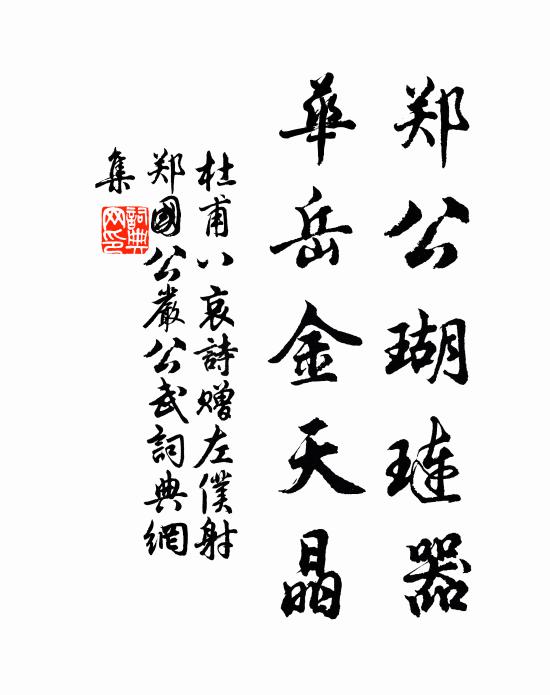 郑公瑚琏器
華岳金天晶
杜甫八哀詩赠左僕射
郑國公嚴公武詞典網
集
詞典
网印